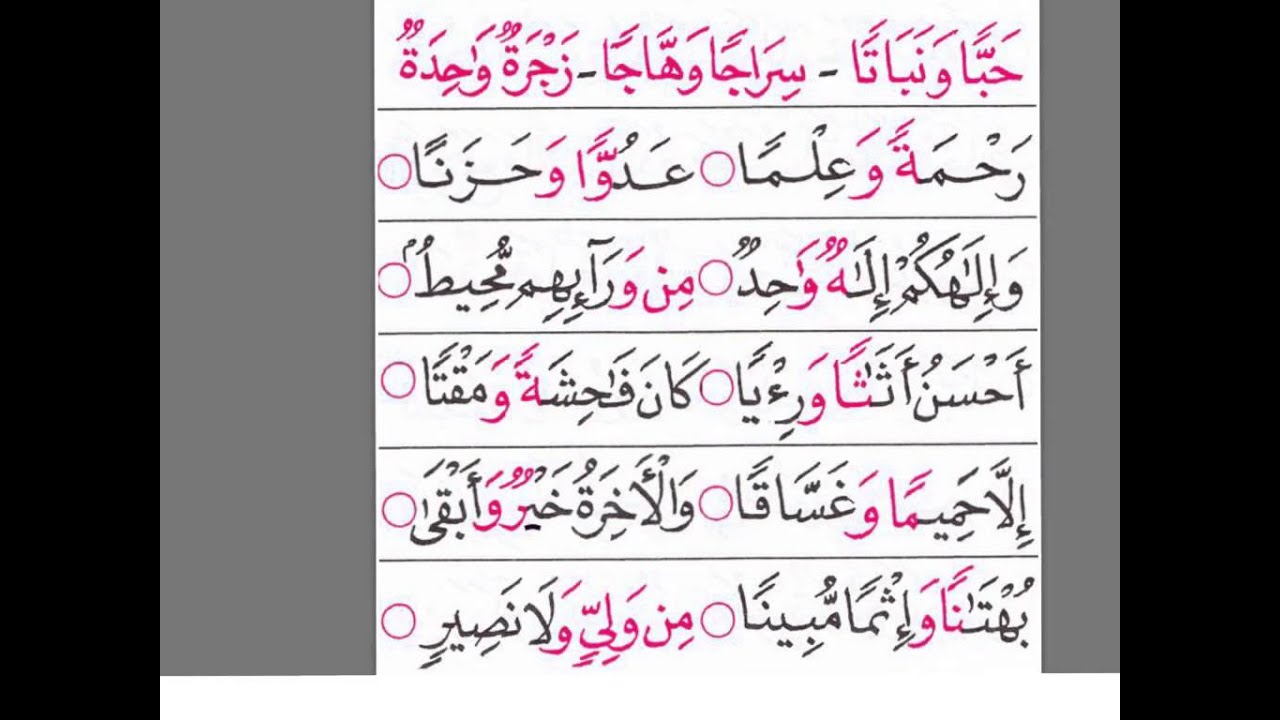 حَبًّا وَنَبَاتًا - سِرَاجًا وَهَّاجًا - زَجْرَةٌ وَٰحِدَةٌ
رَحْمَةً وَعِلْمًا ○ عَدُوًّا وَحَزَنًا ○
وَإِلَٰهُكُمْ إِلَٰهٌ وَٰحِدٌ ○ مِن وَرَآئِهِم مُّحِيطٌ ○
أَحْسَنُ أَثَٰثًا وَرِءْيًا ○ كَانَ فَٰحِشَةً وَمَقْتًا ○
إِلَّا حَمِيمًا وَغَسَّاقًا ○ وَالْأَخِرَةُ خَيْرٌ وَأَبْقَىٰ ○
بُهْتَٰنًا وَإِثْمًا مُّبِينًا ○ مِن وَلِيٍّ وَلَا نَصِيرٍ ○